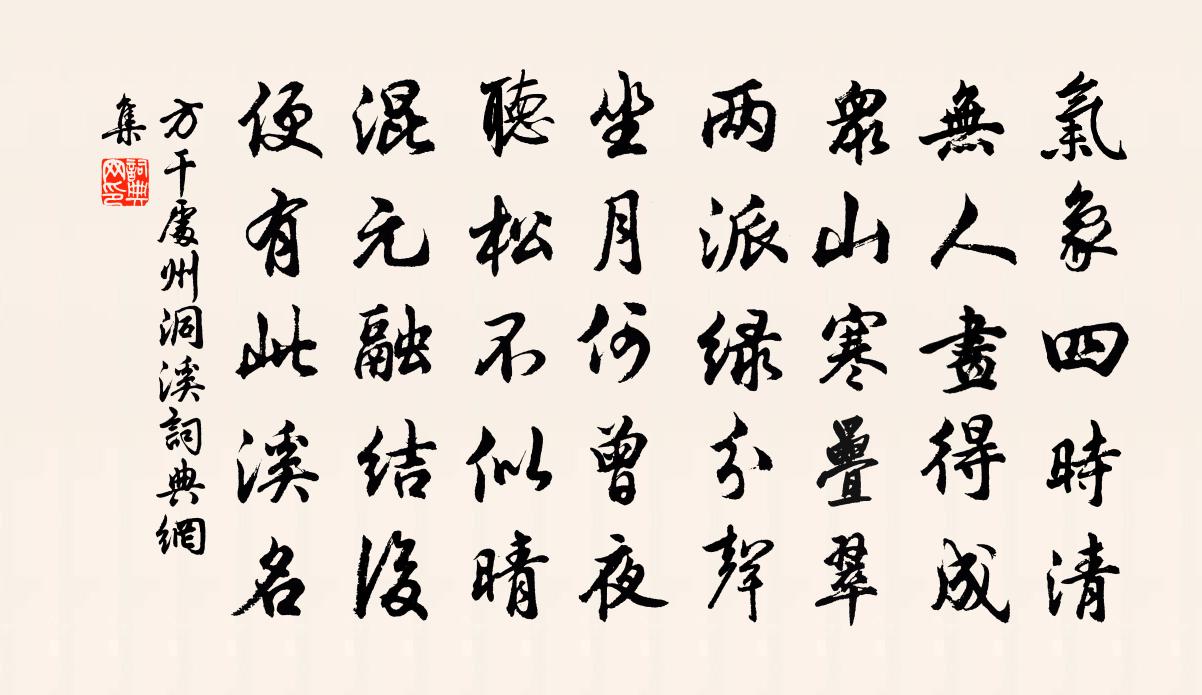 氣象四時清
無人畫得成
衆山寒疊翠
两派緑分聲
坐月何曾夜
聽松不似晴
混元融結後
便有此溪名
方干處州洞溪詞典網
集
詞典網印